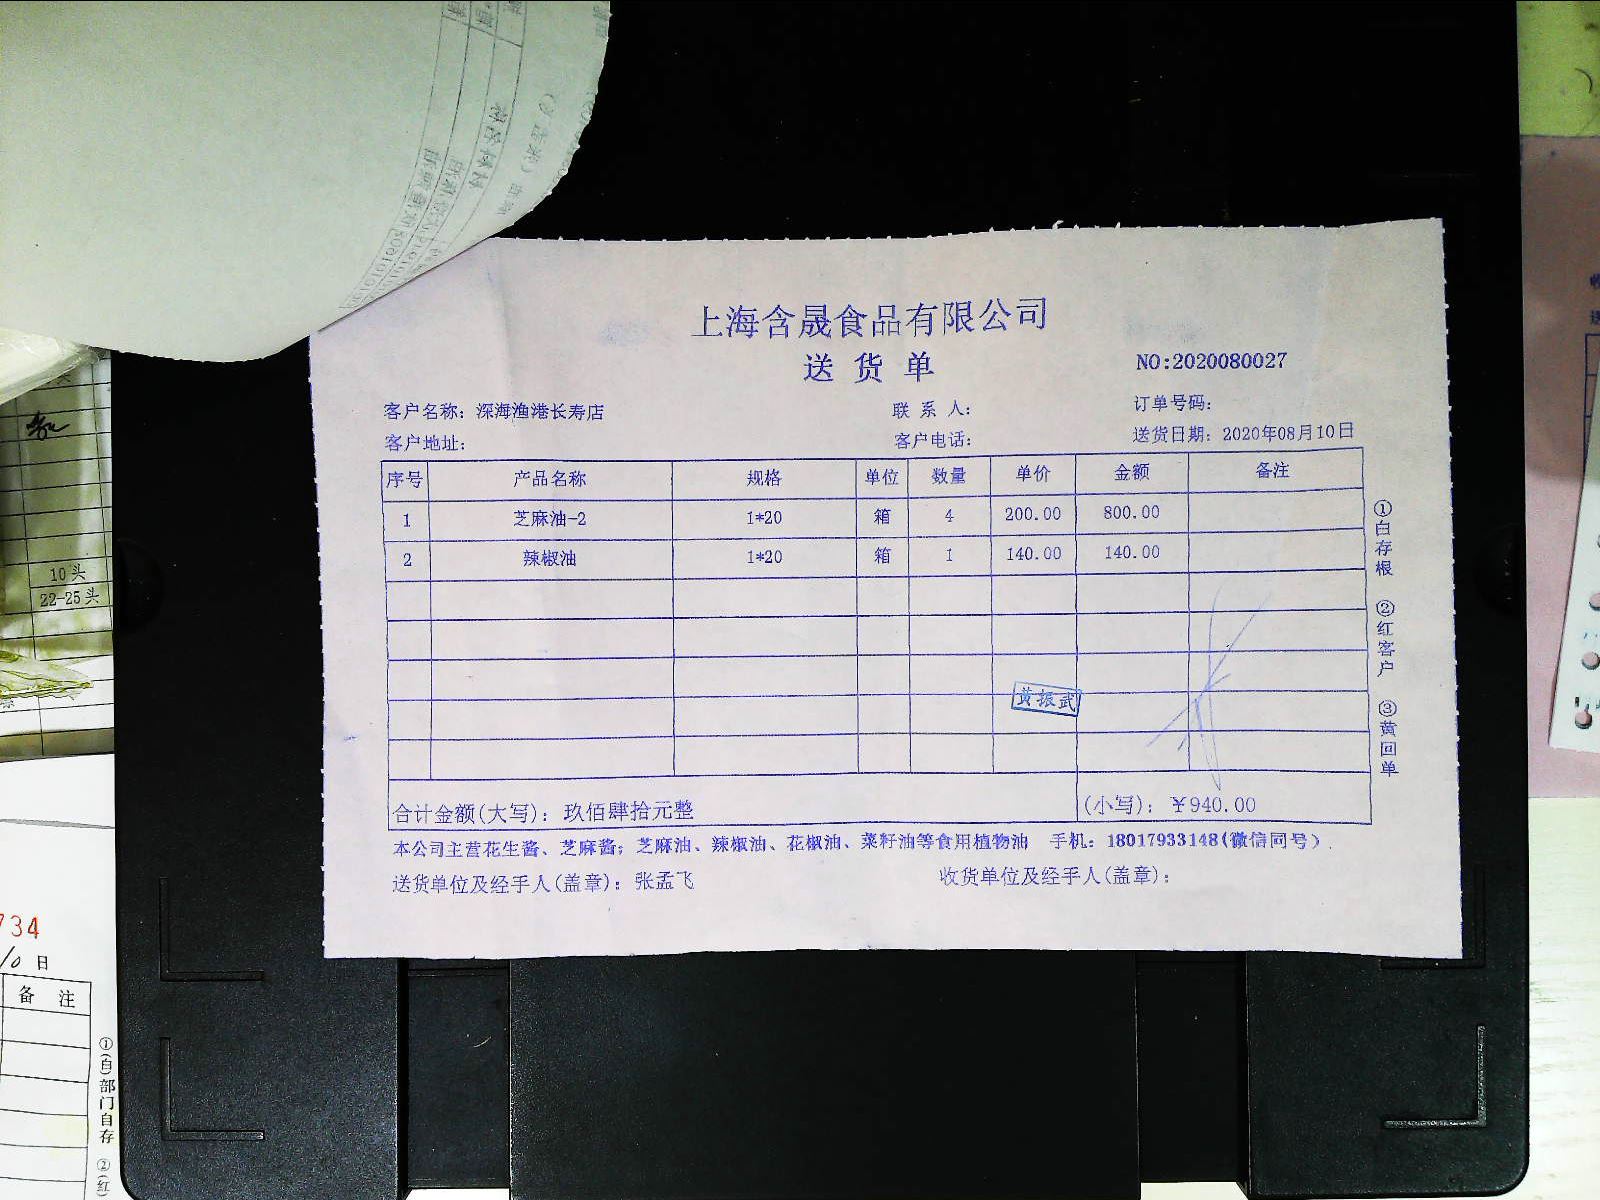 上海含晟食品有限公司
送货单
NO:2020080027
客户名称：深海渔港长寿店 联系人： 订单号码：
客户地址： 客户电话： 送货日期：2020年08月10日
序号 产品名称 规格 单位 数量 单价 金额 备注
1 芝麻油-2 1*20 箱 4 200.00 800.00
2 辣椒油 1*20 箱 1 140.00 140.00
黄振武
合计金额(大写)：玖佰肆拾元整 (小写)：￥940.00
本公司主营花生酱、芝麻酱；芝麻油、辣椒油、花椒油、菜籽油等食用植物油 手机：18017933148(微信同号)．
送货单位及经手人(盖章)：张孟飞 收货单位及经手人(盖章)：
①白存根 ②红客户 ③黄回单
10头
22-25头
734
10日
备注
①(白)部门自存 ②(红)